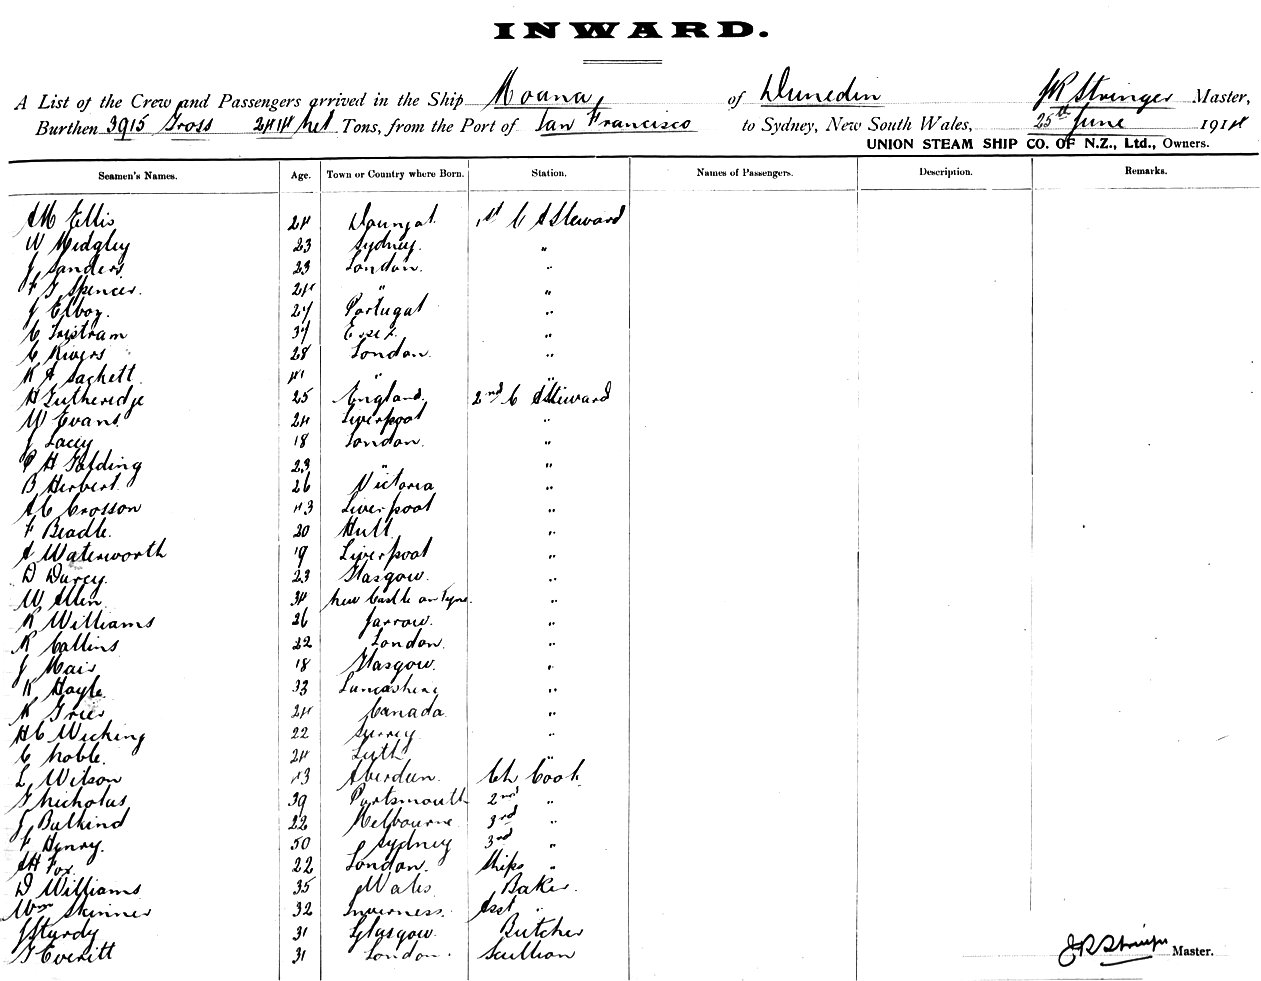 INWARD.
A List of the Crew and Passengers arrived in the Ship Moana of Dunedin J R Stringer Master,
Burthen 3915 Gross 2414 net Tons, from the Port of San Francisco to Sydney, New South Wales, 25th June 1914
UNION STEAM SHIP CO. OF N.Z., Ltd., Owners.
Seamen's Names. Age. Town or Country where Born. Station. Names of Passengers. Description. Remarks.
A M Ellis 24 1st C A Steward
W Midgley 23 Sydney. "
J Sanders. 23 London. "
F G Spencer. 24 " "
J Elboz. 27 Portugal "
C Tristram 37 Essex. "
C Rivers 28 London. "
R A Sackett. 41 " "
H Gutheridge 25 England. 2nd C A Steward
W Evans 24 Liverpool "
J Lacey 18 London. "
P H Fielding 23 " "
B Herbert. 26 Victoria "
A C Crosson 43 Liverpool "
F Beadle. 20 Hull "
A Waterworth 19 Liverpool "
D Darcy. 23 Glasgow. "
W Allen 34 New Castle on Tyne. "
R Williams 26 Jarrow. "
R Collins 22 London. "
J Mair 18 Glasgow. "
R Hoyle. 33 Lancashire "
K Grier 24 Canada. "
H C Wicking 22 Surrey "
C Noble. 24 Leith "
L Wilson 43 Aberdeen. Ch Cook.
T Nicholas 39 Portsmouth 2nd "
J Bulkind 22 Melbourne 3rd "
F Henry. 50 Sydney 3rd "
A H Fox. 22 London. Ships "
D Williams 35 Wales Baker.
Wm Skinner 32 Inverness. Asst "
J Sturdy 31 Glasgow. Butcher
T Everitt 31 London. Scullion
J R Stringer Master.